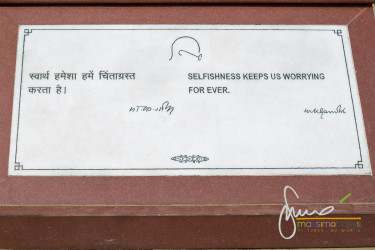 स्वार्थ हमेशा हमें चिंताग्रस्त
करता है।
SELFISHNESS KEEPS US WORRYING
FOR EVER.
mkGandhi
massimo